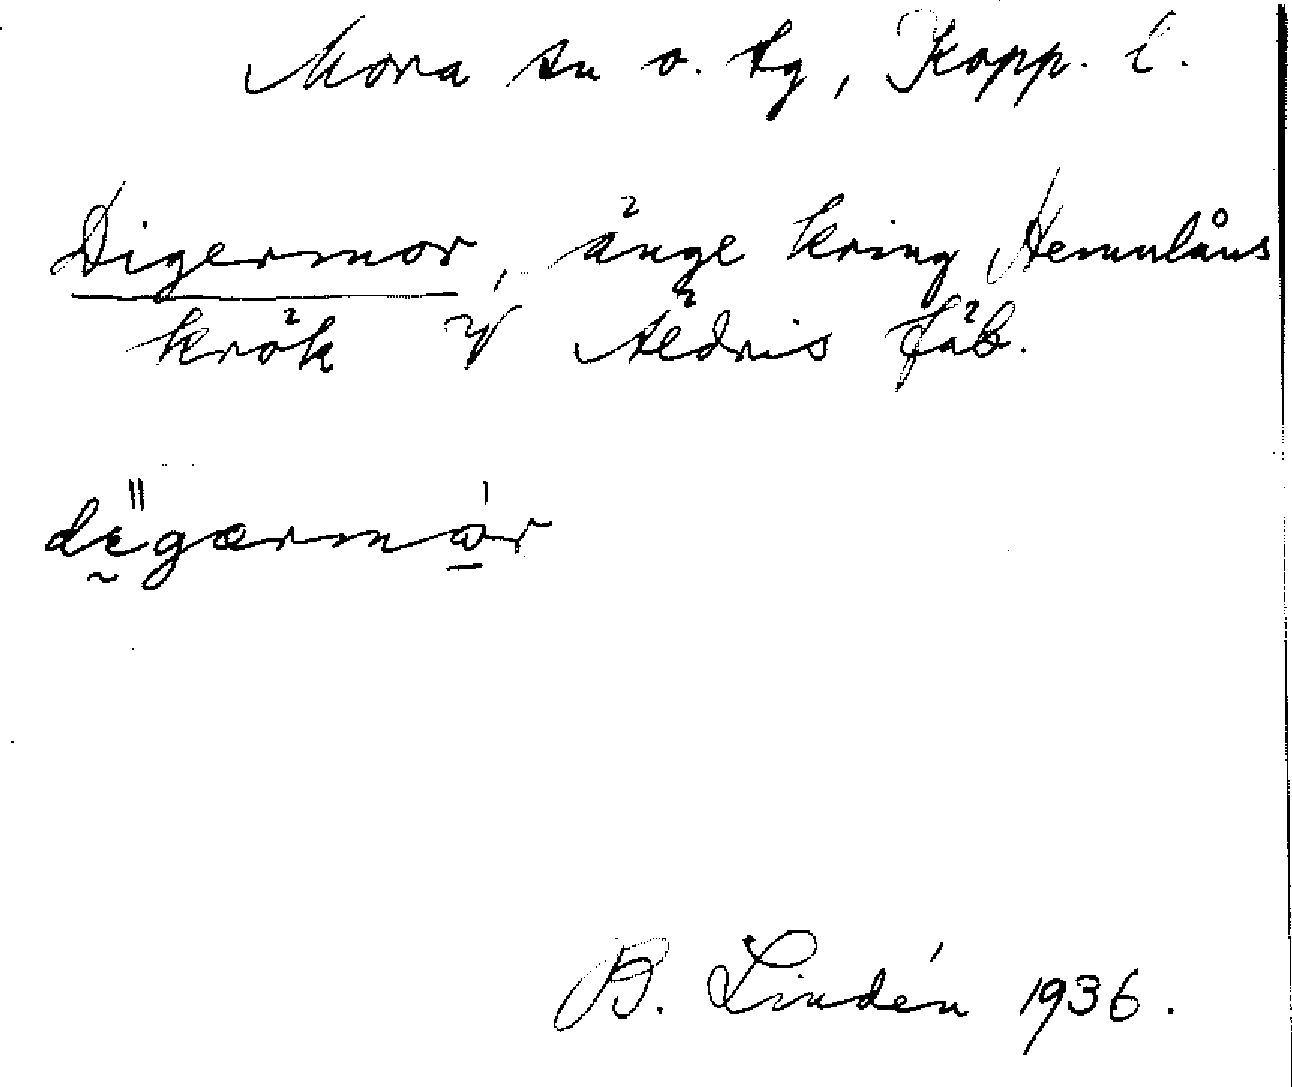 Mora sn o. tg, Kopp. l.
Digermor, änge kring Hemulåns
krök v Äldris fäb.
dıgærmor
B. Lindén 1936.